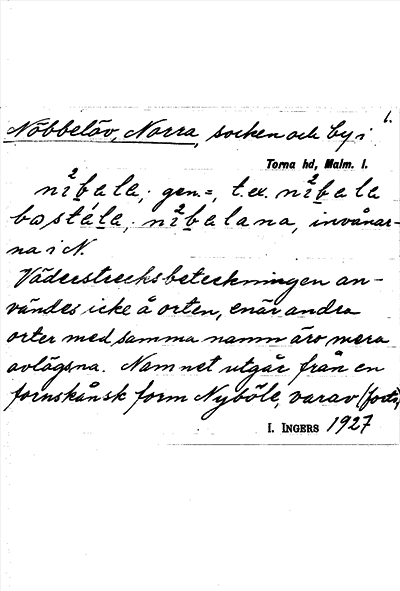 1.
Nöbbelöv, Norra, socken och by i
Torna hd, Malm. l.
ni2bala; gen. =, t. ex. ni2bala
bastála; ni2balana, invånar-
na i N.
Väderstrecksbeteckningen an-
vändes icke å orten, enär andra
orter med samma namn äro mera
avlägsna. Namnet utgår från en
fornskånsk form Nyböle, varav (forts.)
I. INGERS 1927